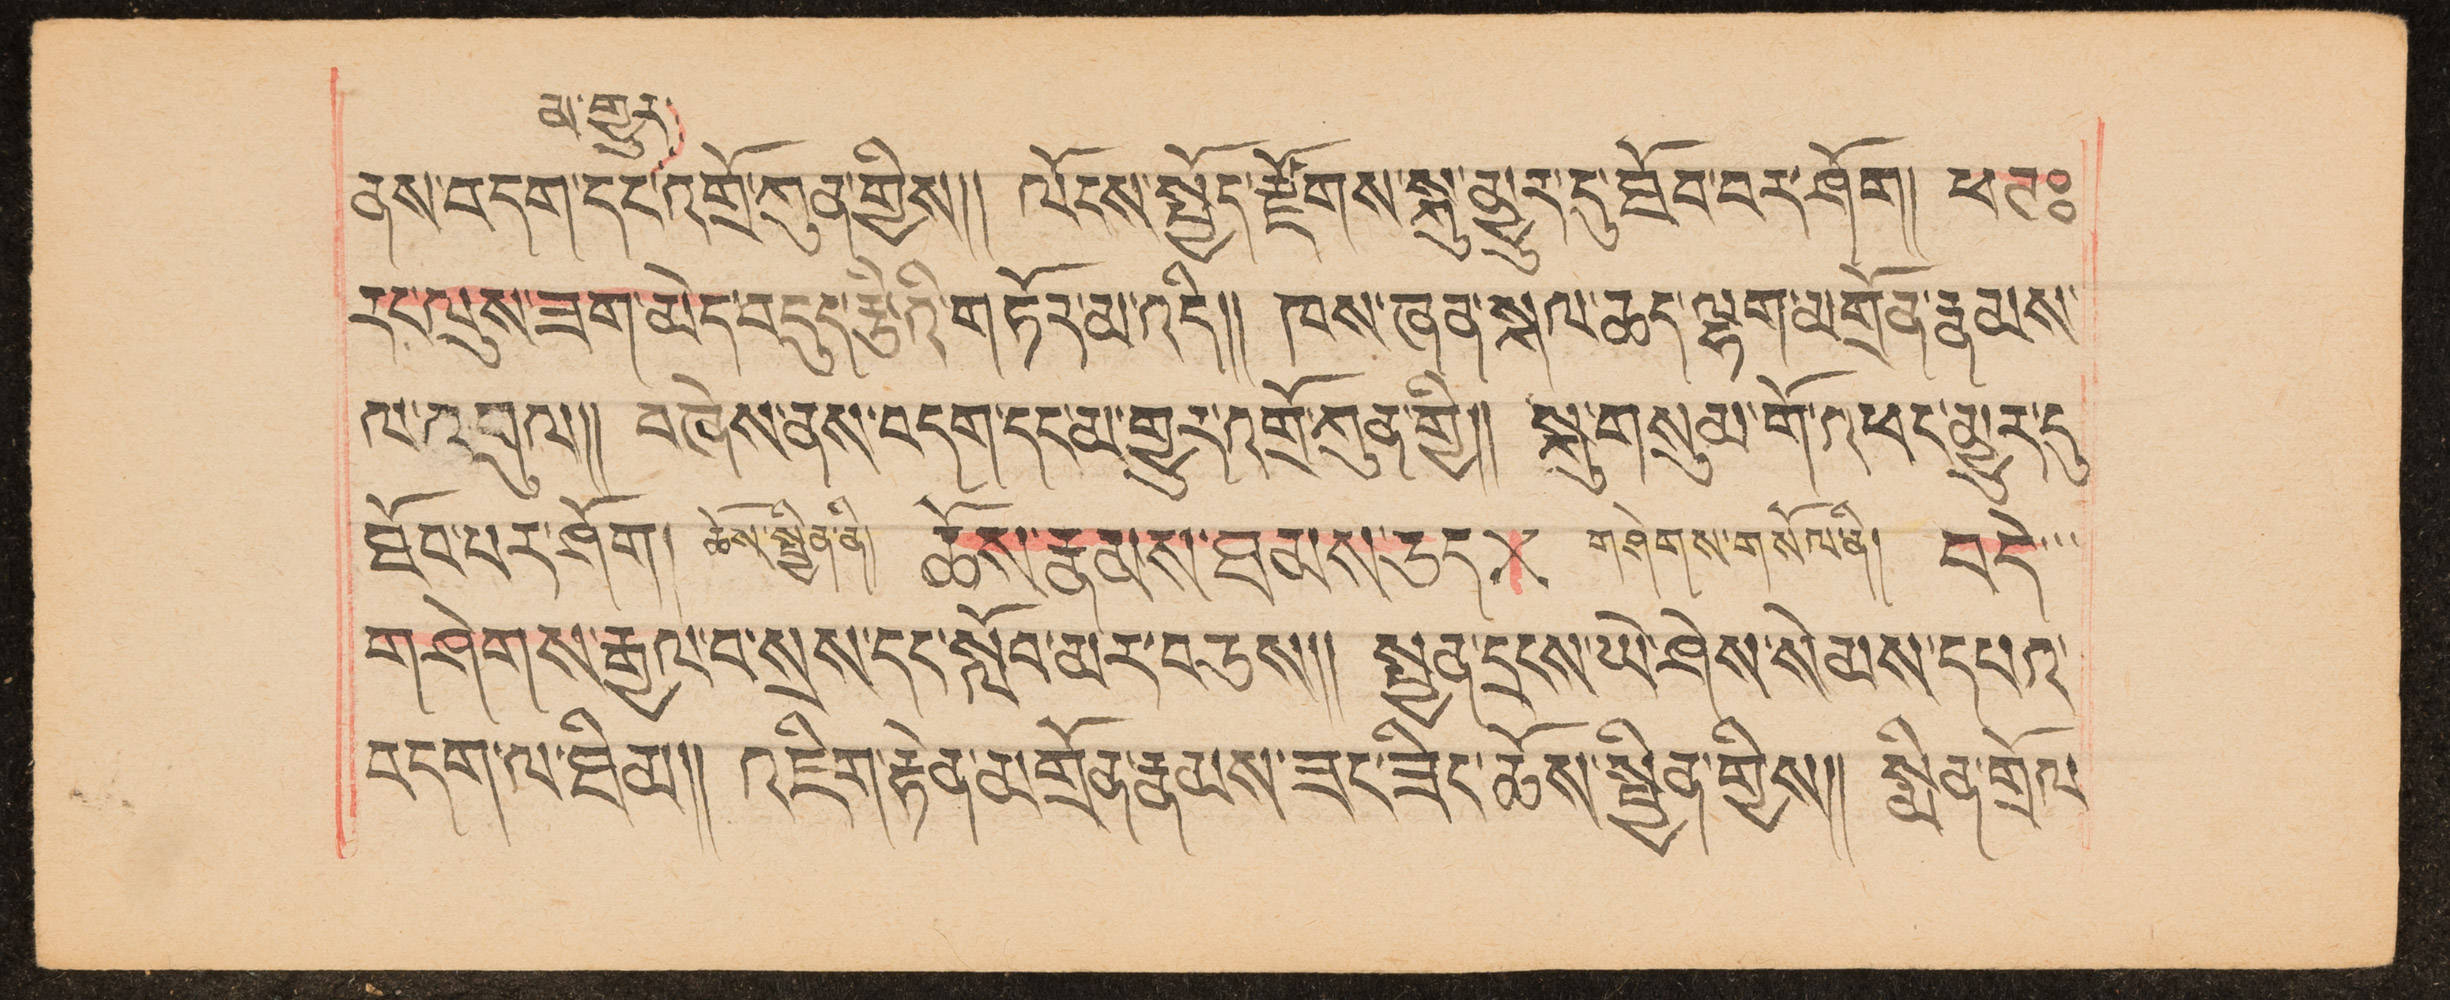 མ་གྱུར་
ནས་བདག་དང་འགྲོ་ཀུན་གྱིས།། ལོངས་སྤྱོད་རྫོགས་སྐུ་མྱུར་དུ་ཐོབ་པར་ཤོག། ཕཊཿ
རང་ལུས་ཟག་མེད་བདུད་རྩིའི་གཏོར་མ་འདི།། ཁས་ཞན་སྐལ་ཆད་ལྷག་མགྲོན་རྣམས་
ལ་འབུལ།། བཞེས་ནས་བདག་དང་མ་གྱུར་འགྲོ་ཀུན་གྱི།། སྐུ་གསུམ་གོ་འཕང་མྱུར་དུ་
ཐོབ་པར་ཤོག། ཆོས་སྦྱིན་ནི། ཆོས་རྣམས་ཐམས་ཅད་× གཤེགས་གསོལ་ནི། བདེ་...
གཤེགས་རྒྱལ་བ་སྲས་དང་སློབ་མར་བཅས།། སྤྱན་དྲངས་ཡེ་ཤེས་སེམས་དཔའ་
བདག་ལ་ཐིམ།། འཇིག་རྟེན་མགྲོན་རྣམས་ཟང་ཟིང་ཆོས་སྦྱིན་གྱིས།། སྨིན་གྲོལ་